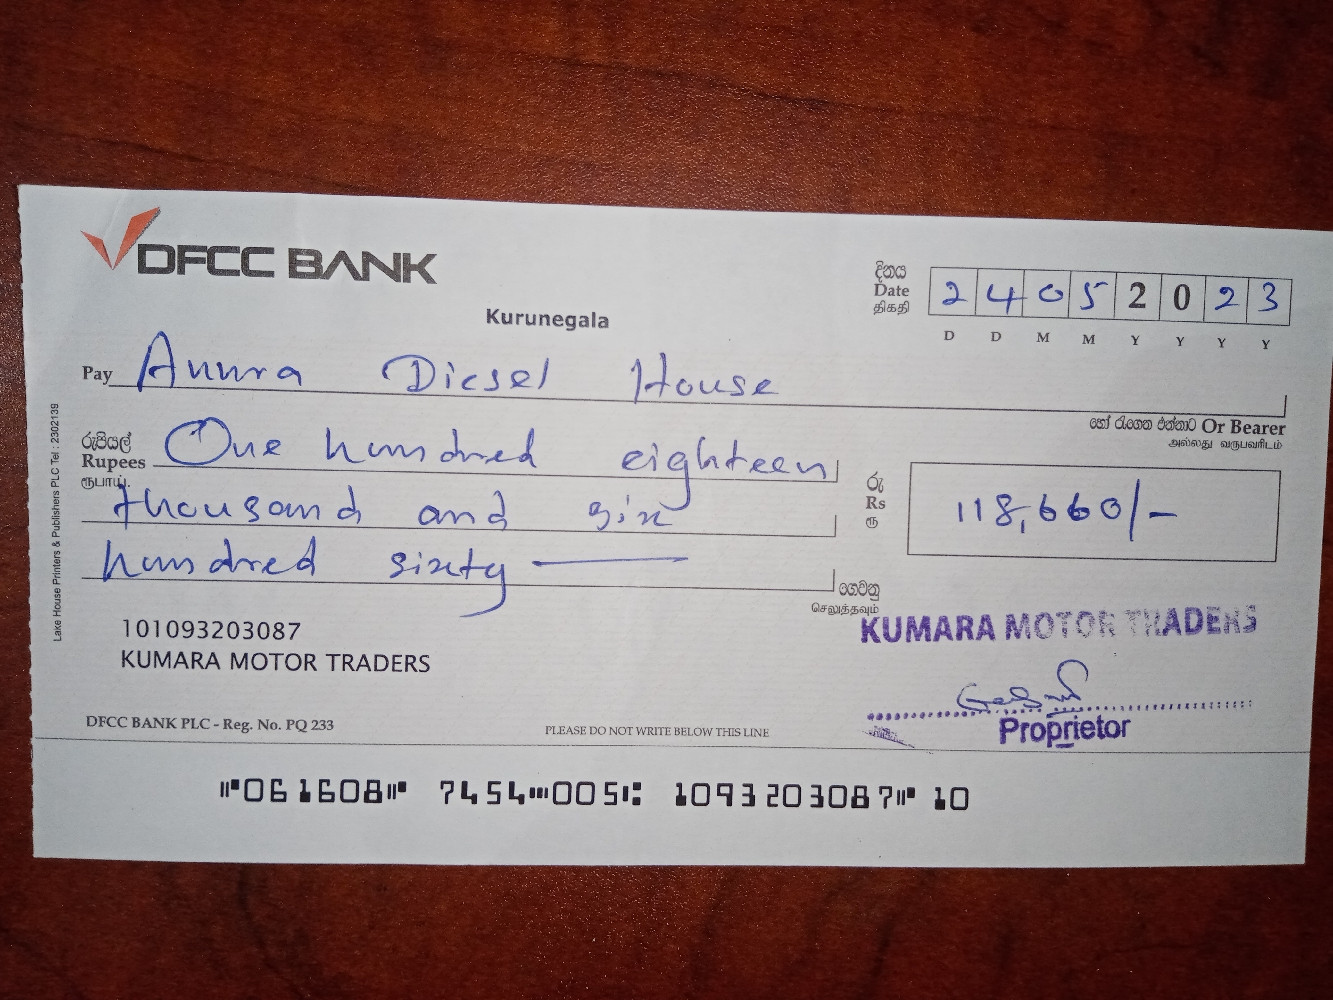 DFCC BANK
Kurunegala
දිනය
Date
திகதி
2 4 0 5 2 0 2 3
D D M M Y Y Y Y
Pay Anura Diesel House
හෝ රැගෙන එන්නාට Or Bearer
அல்லது வருபவரிடம்
රුපියල්
Rupees
ரூபாய்.
One hundred eighteen
thousand and six
hundred sixty
රු
Rs
ரூ
118,660/-
ගෙවනු
செலுத்தவும்
101093203087
KUMARA MOTOR TRADERS
KUMARA MOTOR TRADERS
Proprietor
DFCC BANK PLC - Reg. No. PQ 233
PLEASE DO NOT WRITE BELOW THIS LINE
⑈061608⑈ 7454⑉005⑆ 1093203087⑈ 10
Lake House Printers & Publishers PLC Tel : 2302139